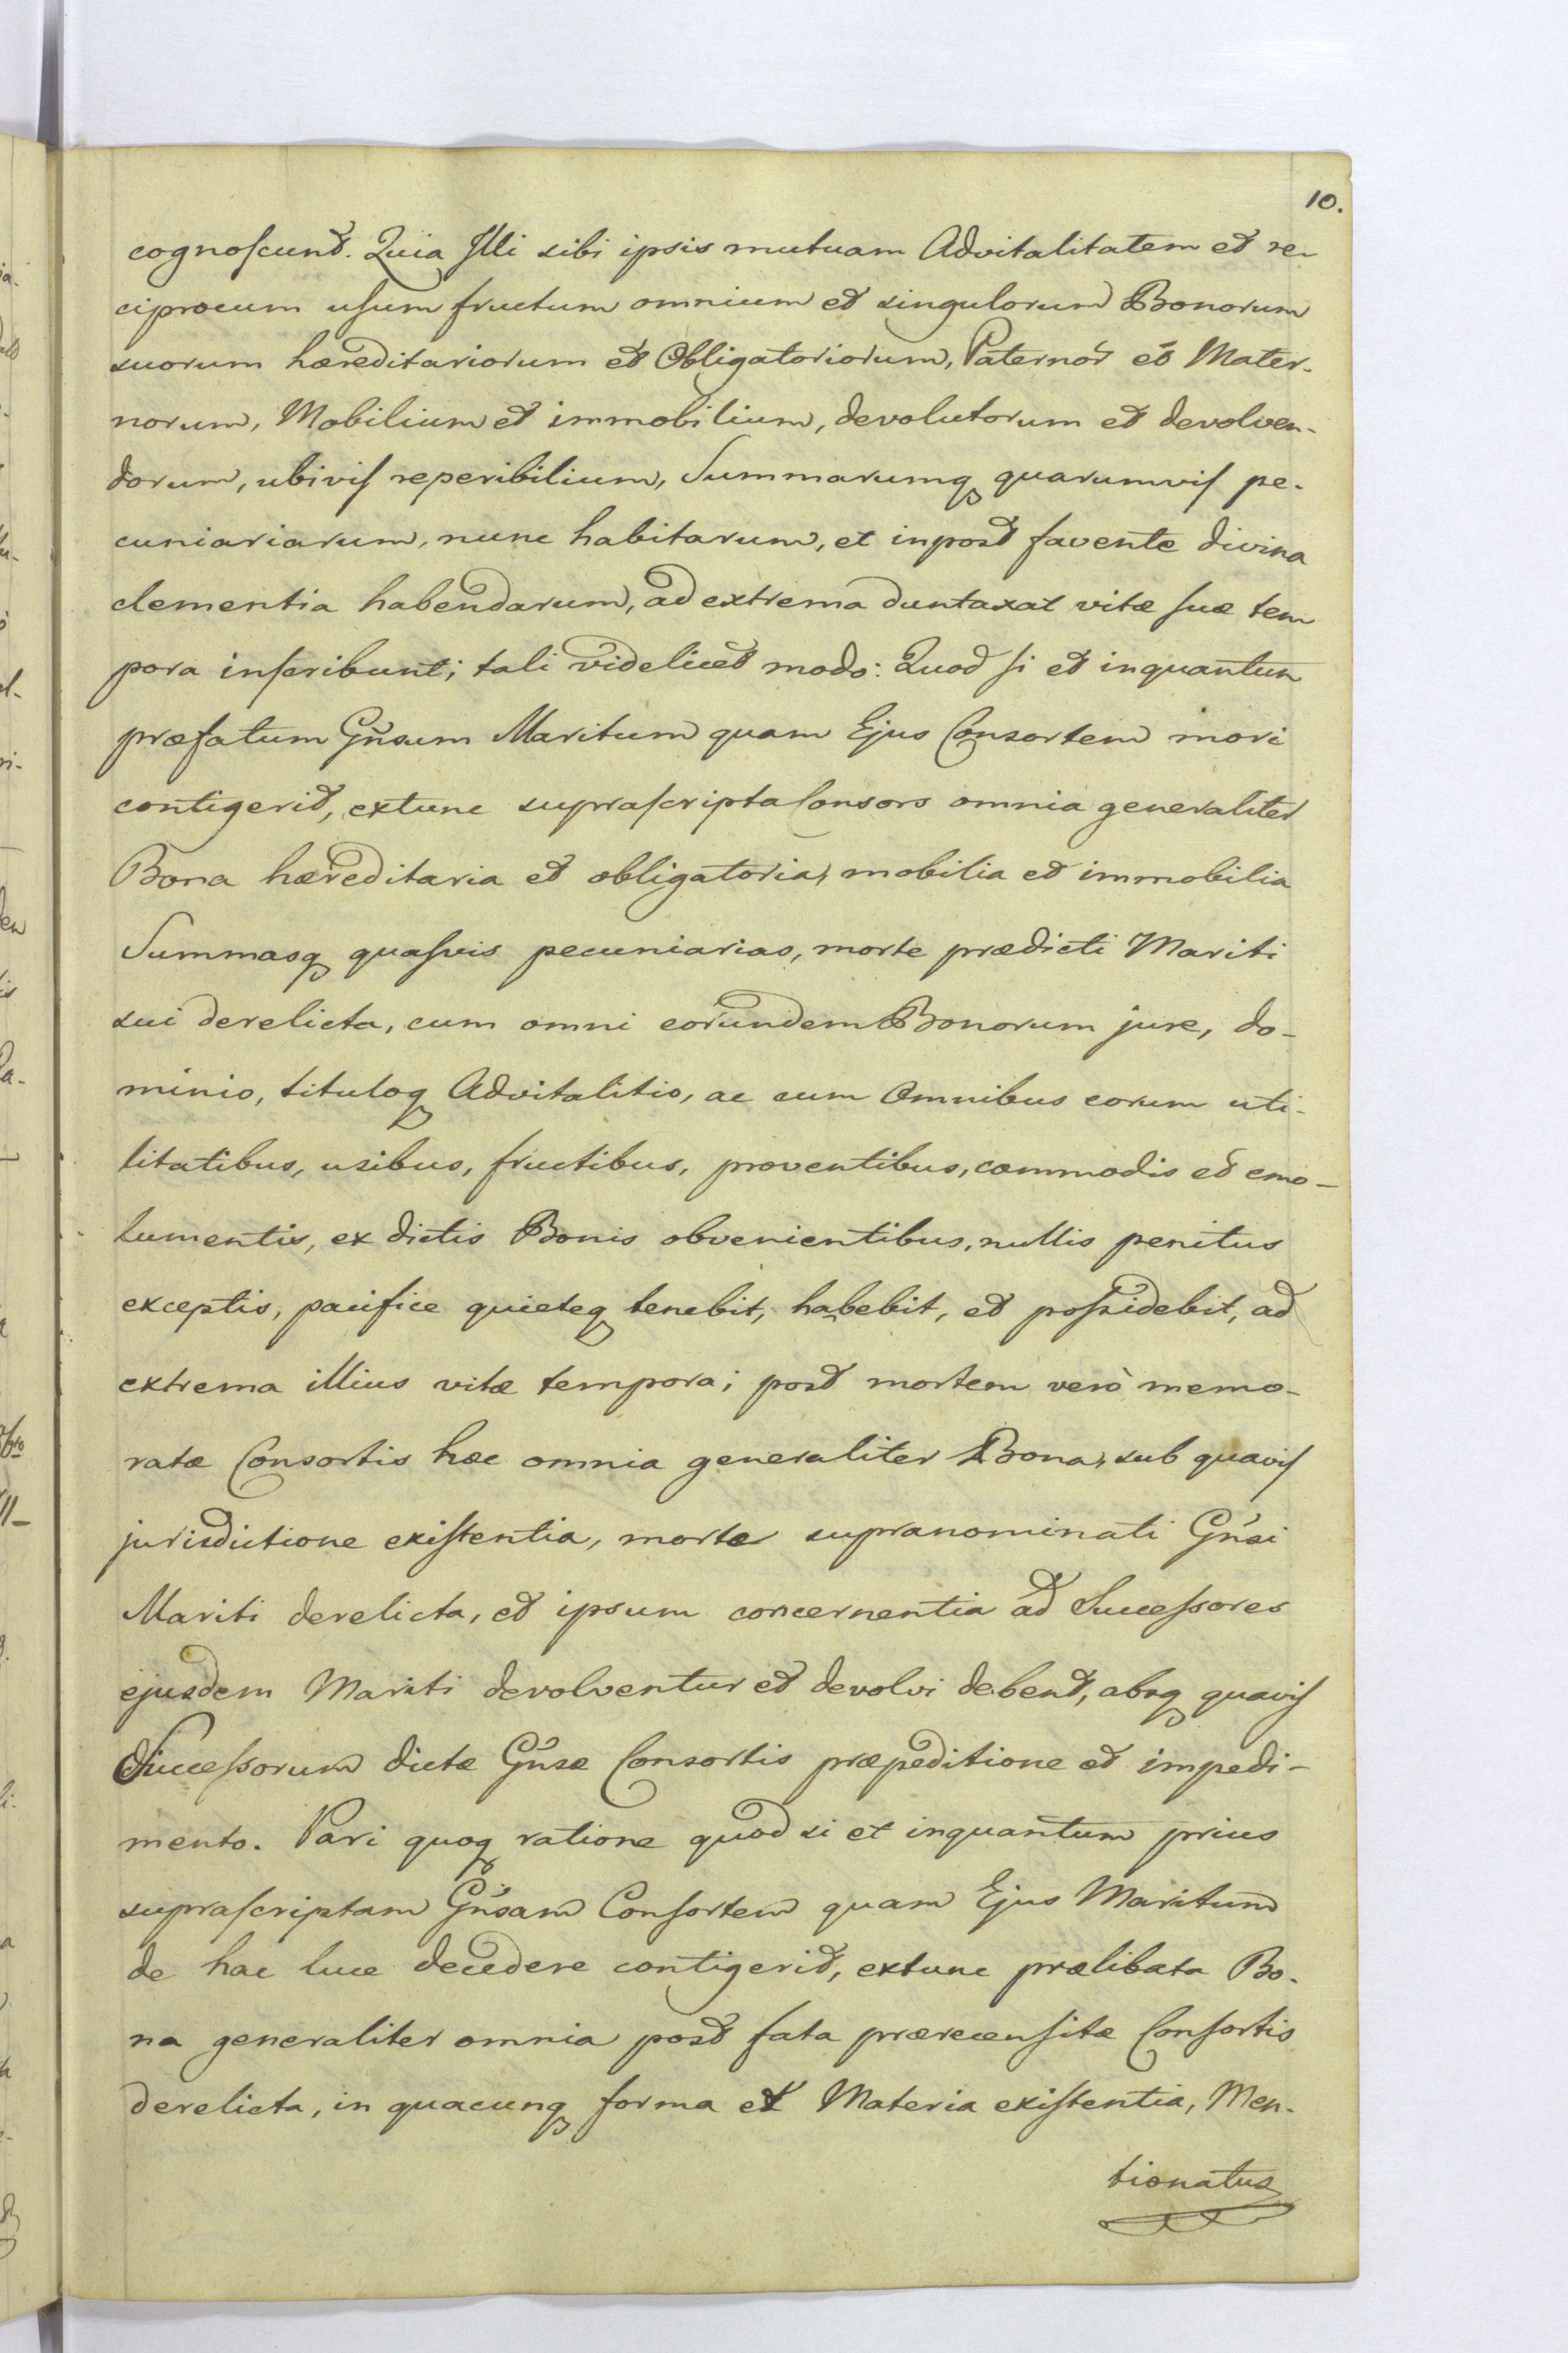 10.
cognoscunt. Quia Illi sibi ipsis mutuam Advitalitatem et re-
ciprocum usum fructum omnium et singulorum Bonorum
suorum hæreditariorum et Obligatoriorum, Paternor̃ et Mater-
norum, Mobilium et immobilium, devolutorum et devolven-
dorum, ubivis reperibilium, Summarumq quarumvis pe-
cuniariarum, nunc habitarum, et inpost favente divina
clementia habendarum, ad extrema duntaxat vitæ suæ tem
pora inscribunt; tali videlicet modo: Quod si et inquantum
præfatum Gñsum Maritum quam Ejus Consortem mori
contigerit, extunc suprascripta Consors omnia generaliter
Bona hæreditaria et obligatoria, mobilia et immobilia
Summasq quasvis pecuniarias, morte prædicti Mariti
sui derelicta, cum omni eorundem Bonorum jure, do-
minio, tituloq Advitalitio, ac cum Omnibus eorum uti-
litatibus, usibus, fructibus, proventibus, commodis et emo-
lumentis, ex dictis Bonis obvenientibus, nullis penitus
exceptis, pacifice quieteq tenebit, habebit, et possidebit, ad
extrema illius vitæ tempora; post mortem verò memo-
ratæ Consortis hæc omnia generaliter Bona, sub quavis
jurisdictione existentia, morte supranominati Gñsi
Mariti derelicta, et ipsum concernentia ad Successores
ejusdem Mariti devolventur et devolvi debent, absq quavis
Successorum dictæ Gñsæ Consortis præpeditione et impedi-
mento. Pari quoq ratione quod si et inquantum prius
suprascriptam Gñsam Consortem quam Ejus Maritum
de hac luce decedere contigerit, extunc prælibata Bo-
na generaliter omnia post fata prærecensitæ Consortis
derelicta, in quacunq forma et Materia existentia, Men-
tionatus